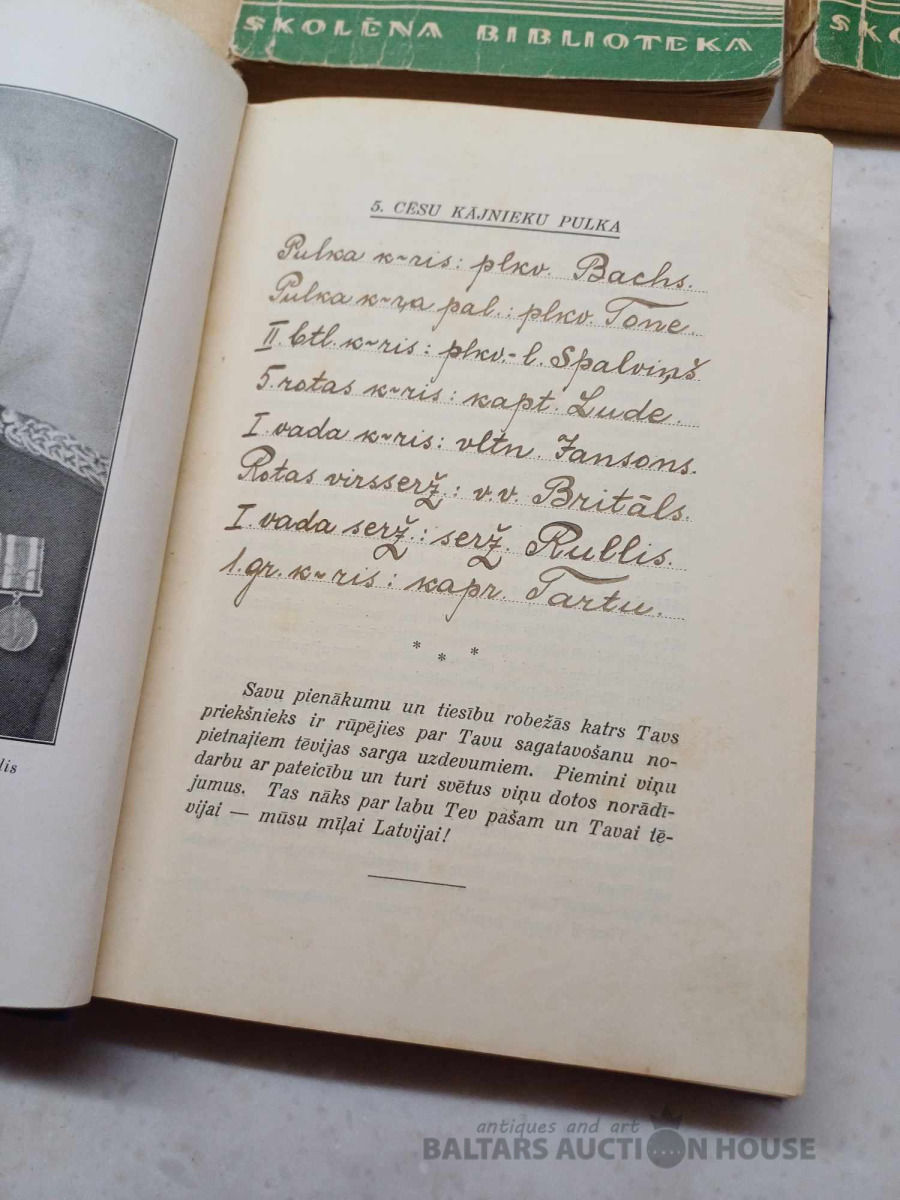 SKOLĒNA BIBLIOTEKA
SKO
5. CĒSU KĀJNIEKU PULKA
Pulka k~ris: plkv. Bachs.
Pulka k~ŗa pal.: plkv. Tone.
II. btl. k~ris: plkv.-l. Spalviņš
5. rotas k~ris: kapt. Lude.
I. vada k~ris: vltn. Jansons.
Rotas virsserž.: v.v. Britāls.
I. vada serž.: serž. Rullis.
1. gr. k~ris: kapr. Tartu.
* * *
Savu pienākumu un tiesību robežās katrs Tavs
priekšnieks ir rūpējies par Tavu sagatavošanu no-
pietnajiem tēvijas sarga uzdevumiem. Piemini viņu
darbu ar pateicību un turi svētus viņu dotos norādī-
jumus. Tas nāks par labu Tev pašam un Tavai tē-
vijai — mūsu mīļai Latvijai!
lis
antiques and art
BALTARS AUCTION HOUSE